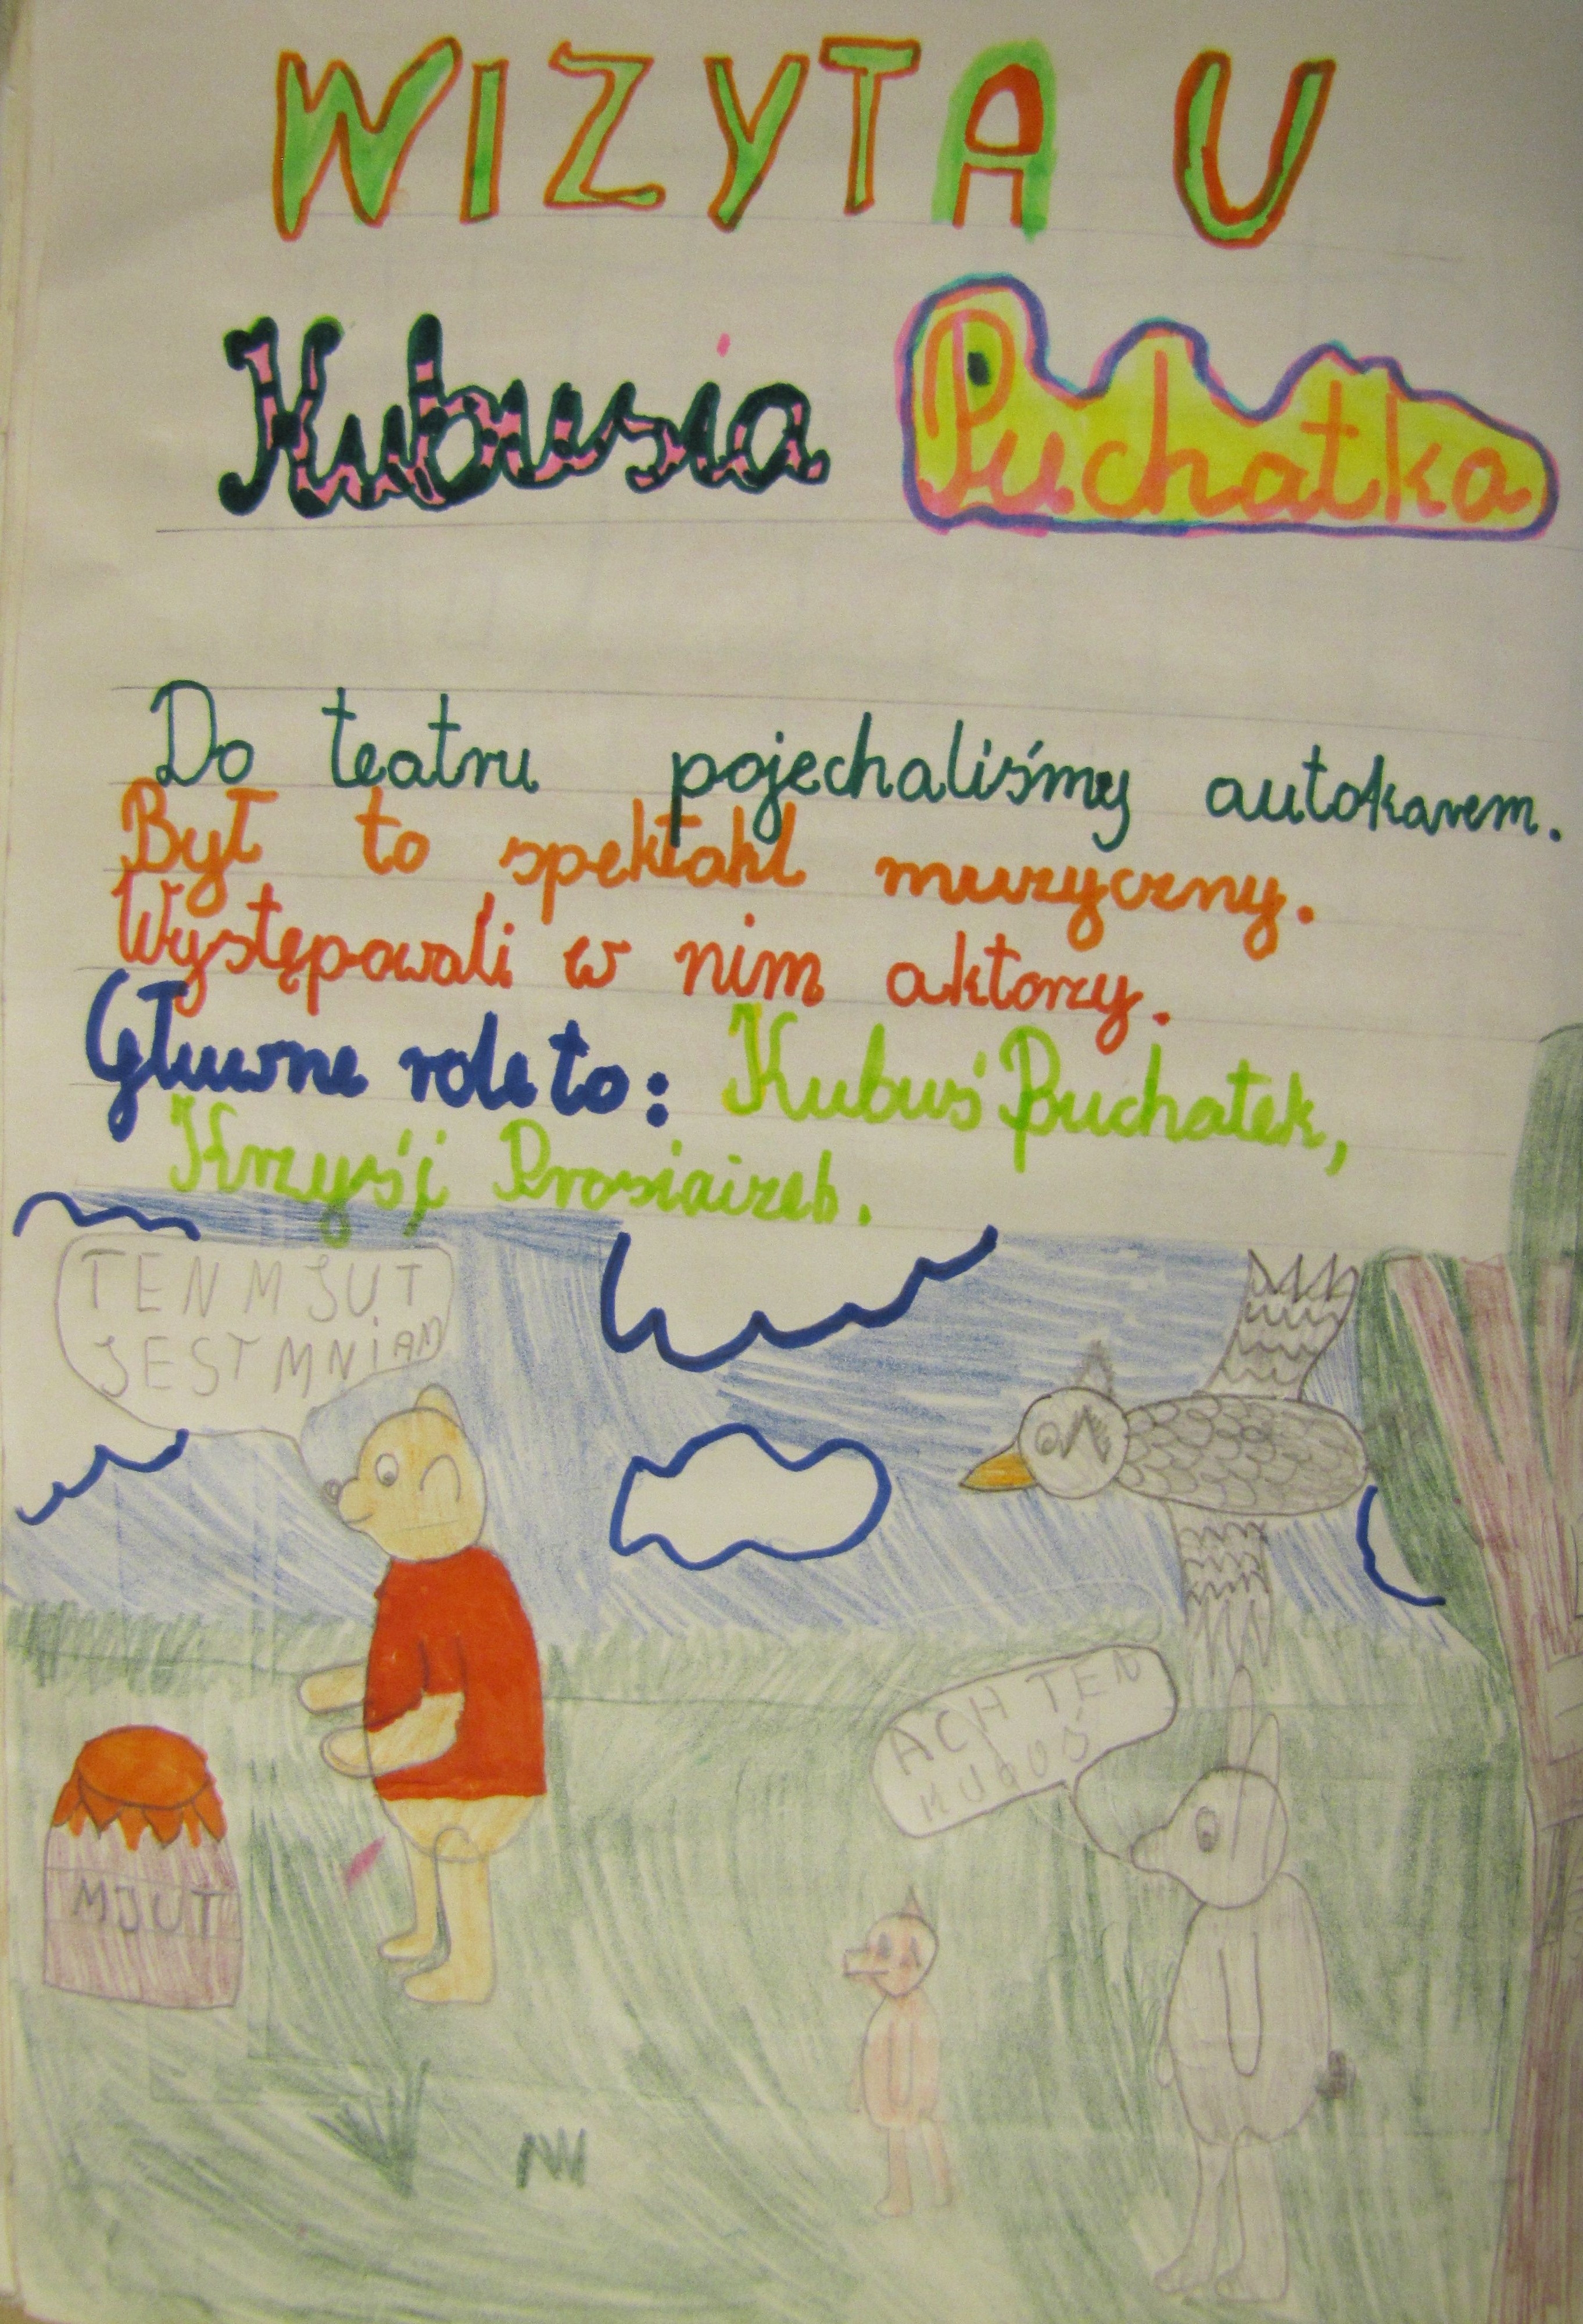 WIZYTA U
Kubusia Puchatka
Do teatru pojechaliśmy autokarem.
Był to spektakl muzyczny.
Występowali w nim aktorzy.
Głuwne role to: Kubuś Puchatek,
Krzyś i Prosiaczek.
TEN MJUT
JEST MNIAM
ACH TEN
MJUT